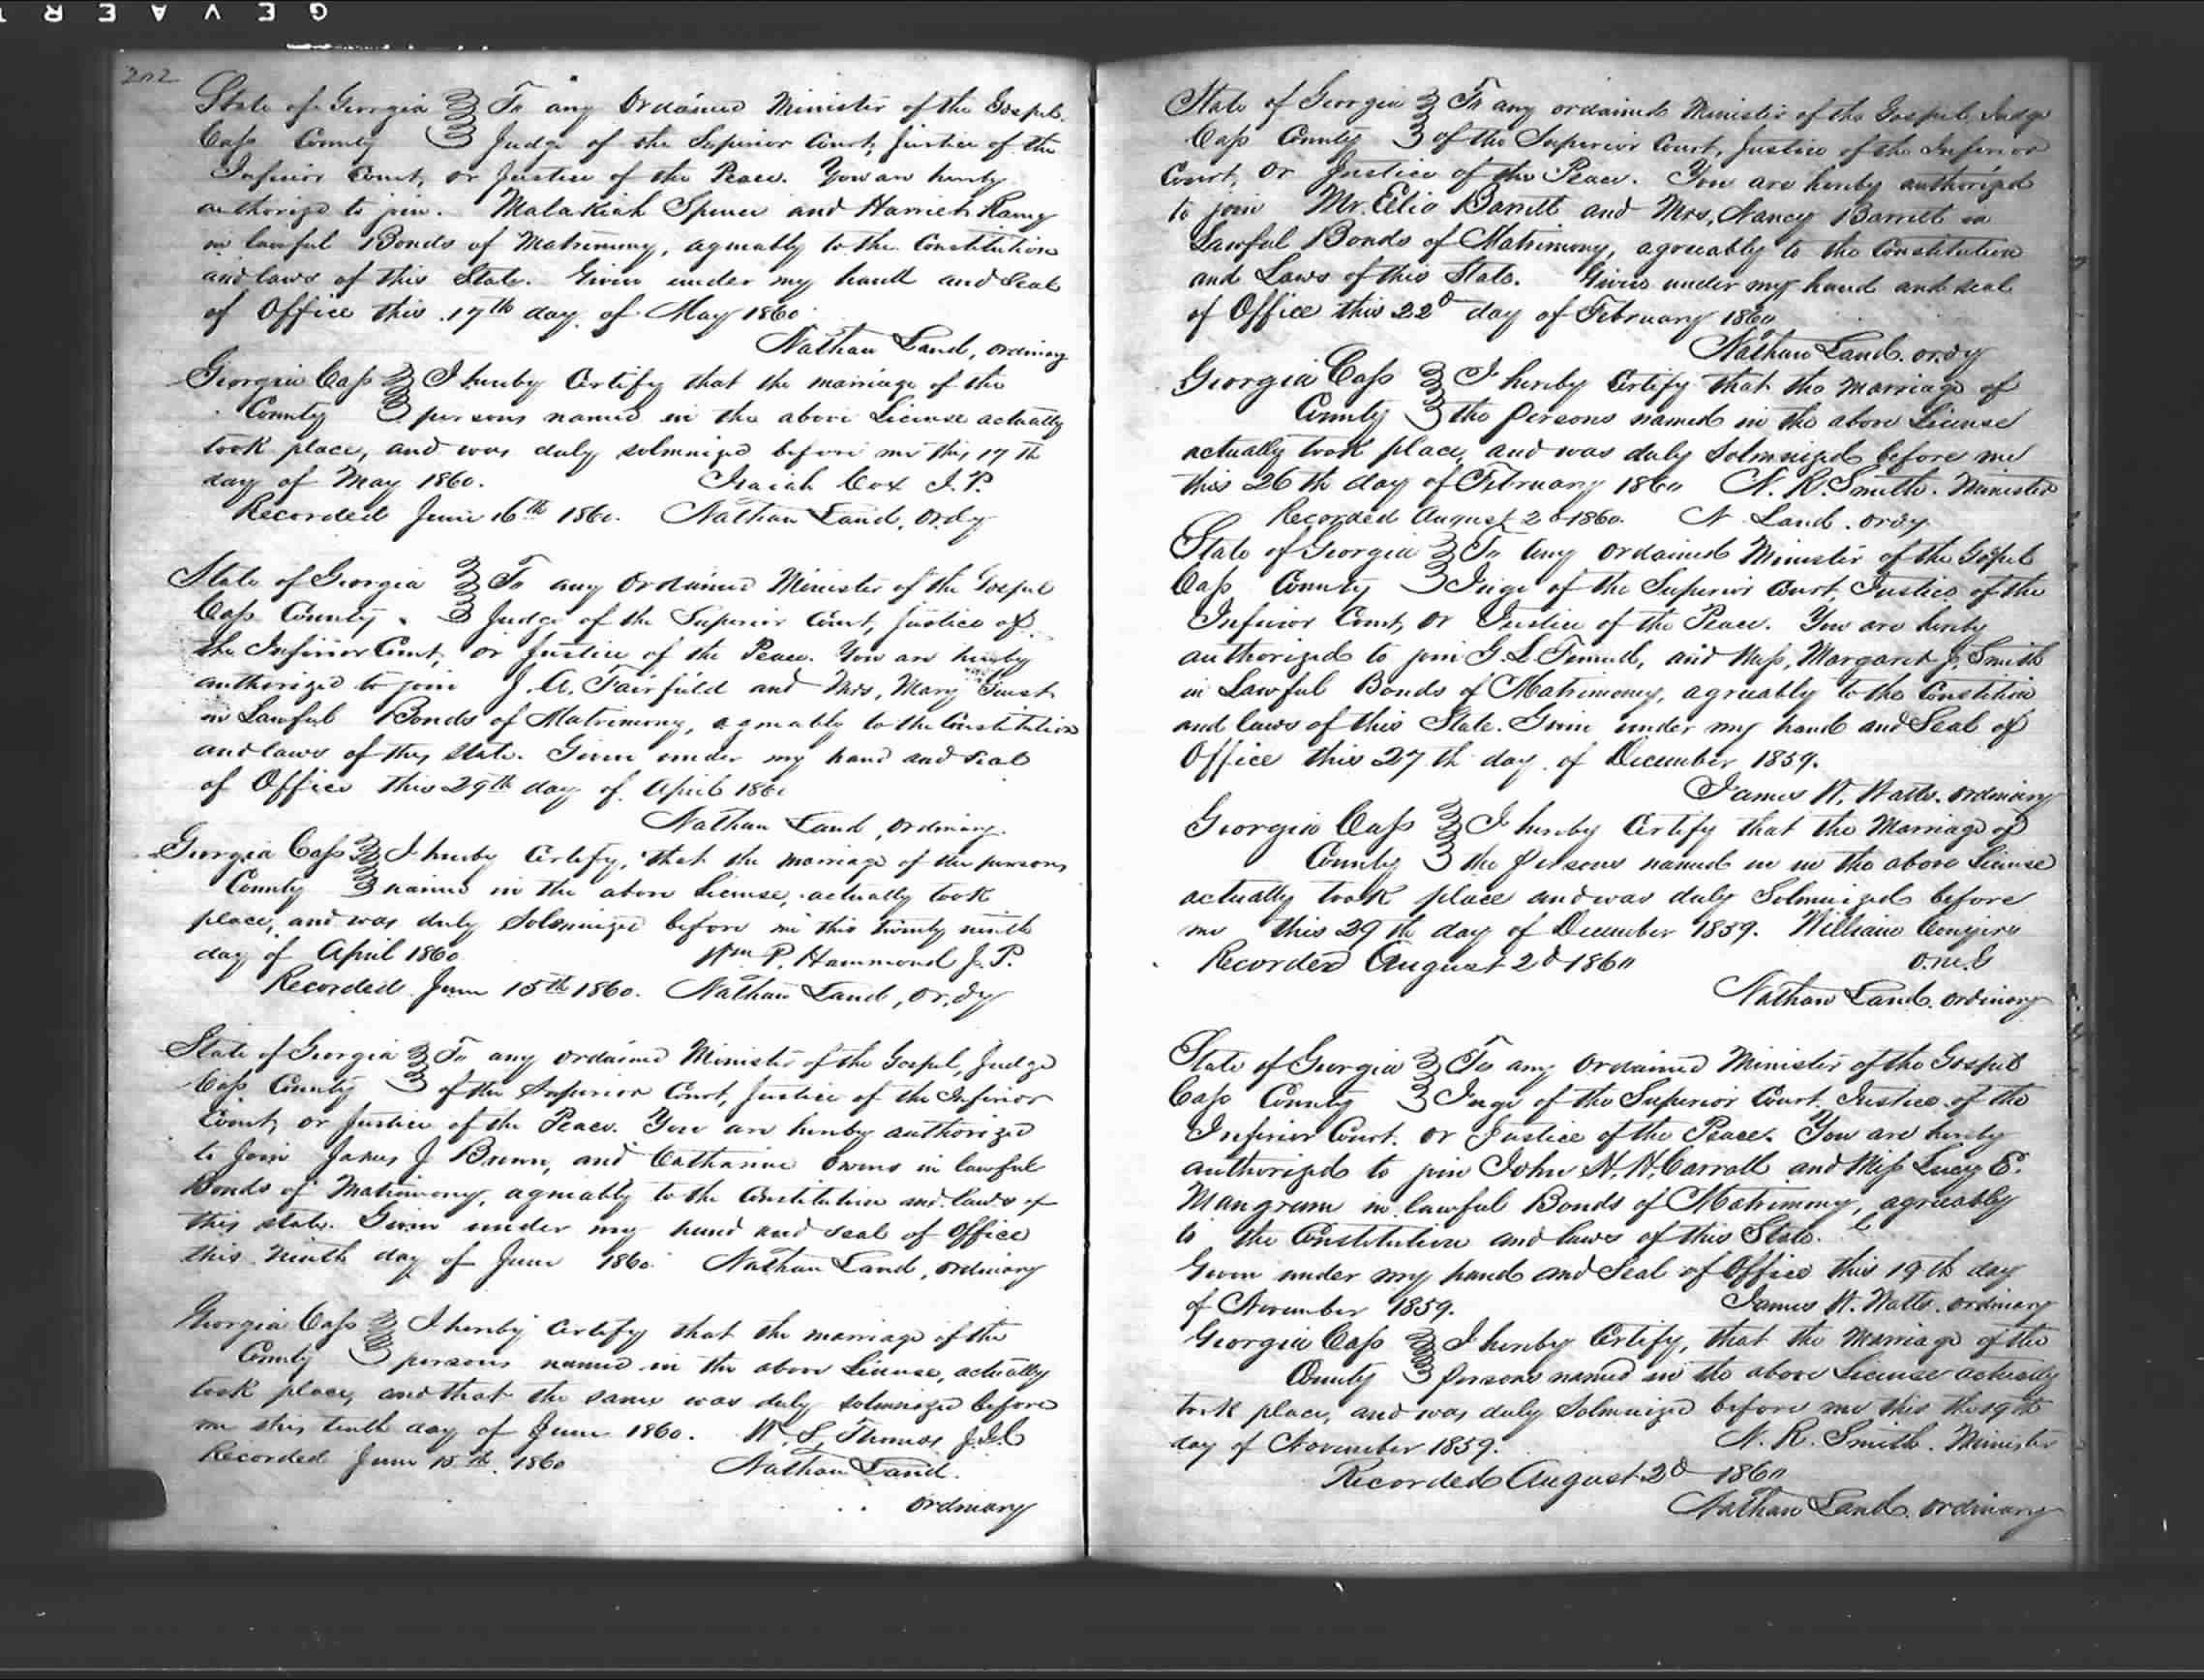 GEVAERT
202
State of Georgia To any Ordained Minister of the Gospel,
Cass County Judge of the Superior Court, Justice of the
Inferior Court, or Justice of the Peace. You are hereby
authorize to join. Malakiah Spencer and Harriet Ramy
in lawful Bonds of Matrimony, agreeably to the Constitution
and laws of this State. Given under my hand and Seal
of Office this 17th day of May 1860
Nathan Land, ordinary
Georgia Cass I hereby Certify that the marriage of the
County persons named in the above License actually
took place, and was duly solemnized before me this 17th
day of May 1860. Isaiah Cox J.P.
Recorded June 16th 1860. Nathan Land, Ordy
State of Georgia To any Ordained Minister of the Gospel
Cass County. Judge of the Superior Court, Justice of
the Inferior Court, or Justice of the Peace. You are hereby
authorized to join J. A. Fairfield and Mrs, Mary
in Lawful Bonds of Matrimony, agreeably to the Constitution
and laws of this State. Given under my hand and seal
of Office this 29th day of April 1860
Nathan Land, Ordinary.
Georgia Cass I hereby Certify, that the marriage of the persons
County named in the above License, actually took
place, and was duly Solemnized before me this twenty ninth
day of April 1860 Wm P. Hammond J.P.
Recorded June 15th 1860. Nathan Land, Or,dy
State of Georgia To any ordained Minister of the Gospel, Judge
Cass County of the Superior Court, Justice of the Inferior
Court, or Justice of the Peace. You are hereby authorized
to Join James J and Catharine Owens in lawful
Bonds of Matrimony, agreeably to the Constitution and laws of
this state. Given under my hand and seal of Office
this ninth day of June 1860 Nathan Land, ordinary
Georgia Cass I hereby Certify that the marriage of the
County persons named in the above License, actually
took place, and that the same was duly solemnized before
me this tenth day of June 1860. W. S. Thomas J.I.C
Recorded June 15th. 1860 Nathan Land.
ordinary
State of Georgia To any ordained Minister of the Gospel, Judge
Cass County of the Superior Court, Justice of the Inferior
Court, or Justice of the Peace. You are hereby authorized
to join Mr. Barrett and Mrs, Nancy Barrett in
Lawful Bonds of Matrimony, agreeably to the Constitution
and Laws of this State. Given under my hand and seal
of Office this 22d day of February 1860
Nathan Land. or.dy
Georgia Cass I hereby Certify that the marriage of
County the persons named in the above License
actually took place, and was duly Solemnized before me
this 26th day of February 1860 N. R. Smith. Minister
Recorded August 2d 1860. N Land. ordy.
State of Georgia To any ordained Minister of the Gospel
Cass County Juge of the Superior Court, Justice of the
Inferior Court, or Justice of the Peace. You are hereby
authorized to join G. L and Miss, Margaret J. Smith
in Lawful Bonds of Matrimony, agreeably to the Constition
and laws of this State. Given under my hand and Seal of
Office this 27th day of December 1859.
James W. Watts. ordinary
Georgia Cass I hereby Certify that the Marriage of
County the persons named in in the above License
actually took place and was duly Solemnized before
me this 29th day of December 1859. William Conyers
Recorded August 2d 1860 O.M.G
Nathan Land. ordinary
State of Georgia To any ordained Minister of the Gospel
Cass County Juge of the Superior Court. Justice of the
Inferior Court. or Justice of the Peace. You are hereby
authorized to join John H. H. Carroll and Miss Lucy E.
Mangrum in lawful Bonds of Matrimony, agreeably
to the Constitution and laws of this State.
Given under my hand and Seal of Office this 19th day
of November 1859. James W. Watts. ordinary
Georgia Cass I hereby Certify, that the Marriage of the
County persons named in the above License actually
took place, and was duly Solemnized before me this the 19th
day of November 1859. N. R. Smith. Minister
Recorded August 2d 1860
Nathan Land. ordinary